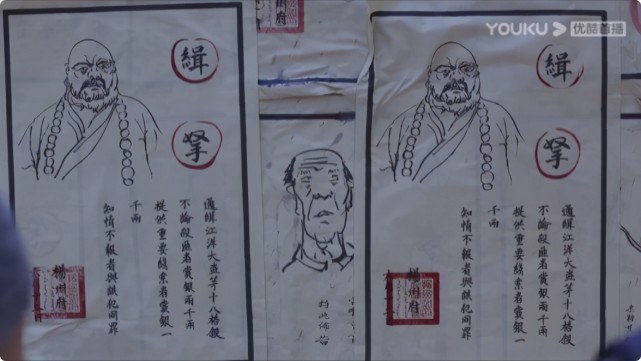 YOUKU 优酷首播
緝
拏
通緝江洋大盜第十八格殺
不論殺匪者賞銀兩千兩
提供重要線索者賞銀一
千兩
知情不報者與賊犯同罪
揚州府
特此佈告
緝
拏
通緝江洋大盜第十八格殺
不論殺匪者賞銀兩千兩
提供重要線索者賞銀一
千兩
知情不報者與賊犯同罪
揚州府